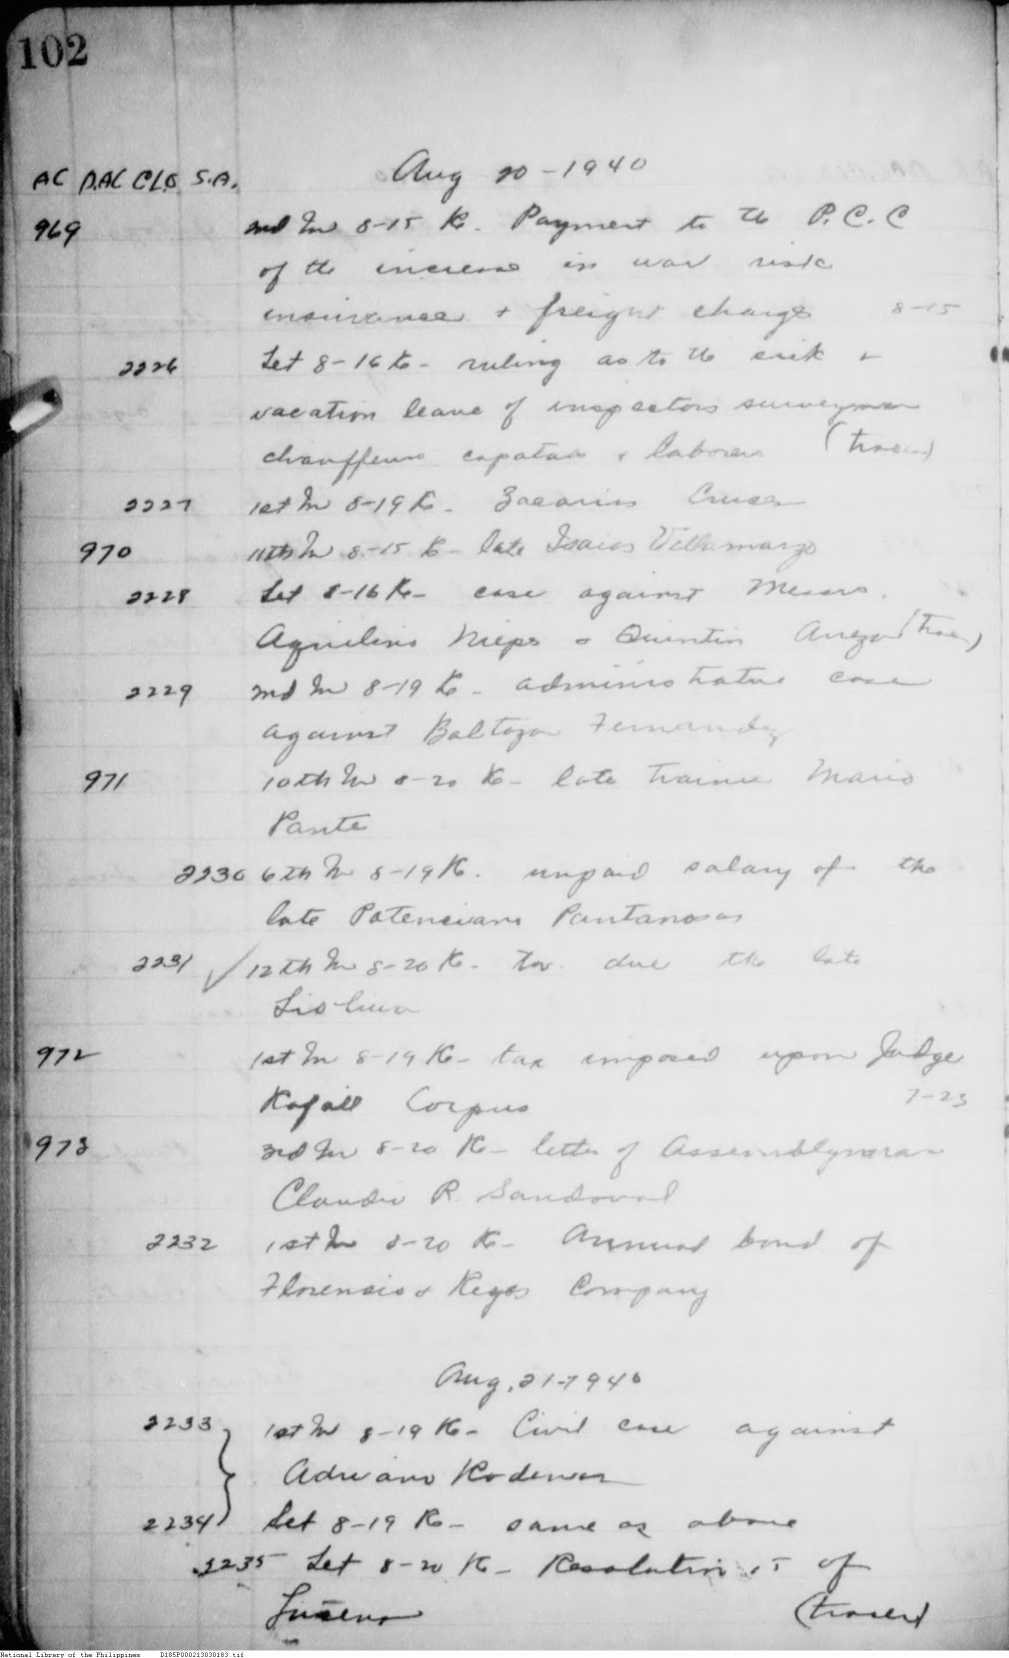 102
Aug 20-1940
AC D.AC CLD S.A.
969 2nd In 8-15 K. Payment to the P.C.C
of the increase in war risk
insurance + freight charge 8-15
2226 Let 8-16 K- ruling as to the sick +
vacation leave of inspectors surveyman
chauffeurs capataz + laborers
2227 1st In 8-19 K. Zacarias Cruces
970 11th In 8-15 K- late Isaias Villamarzo
2228 Let 8-16 K- case against Messrs.
Aquilino Nieps + Quintin
2229 2nd In 8-19 K- administrative case
against Baltazar Fernandez
971 10th In 8-20 K- late trainee Mario
Pante
2230 6th In 8-19 K. unpaid salary of the
late Potenciano Pantanosas
2231 12th In 8-20 K- due the late
972 1st In 8-19 K- tax imposed upon Judge
Rafael Corpus 7-23
973 3rd In 8-20 K- letter of Assemblyman
Claudio R. Sandoval
2232 1st In 8-20 K- Annual bond of
Florencio + Reyes Company
Aug. 21-1940
2233 1st In 8-19 K- Civil case against
Adriano
2234 Let 8-19 K- same as above
2235 Let 8-20 K- Resolution 15 of
Lucena
National Library of the Philippines D185P000213030183.tif